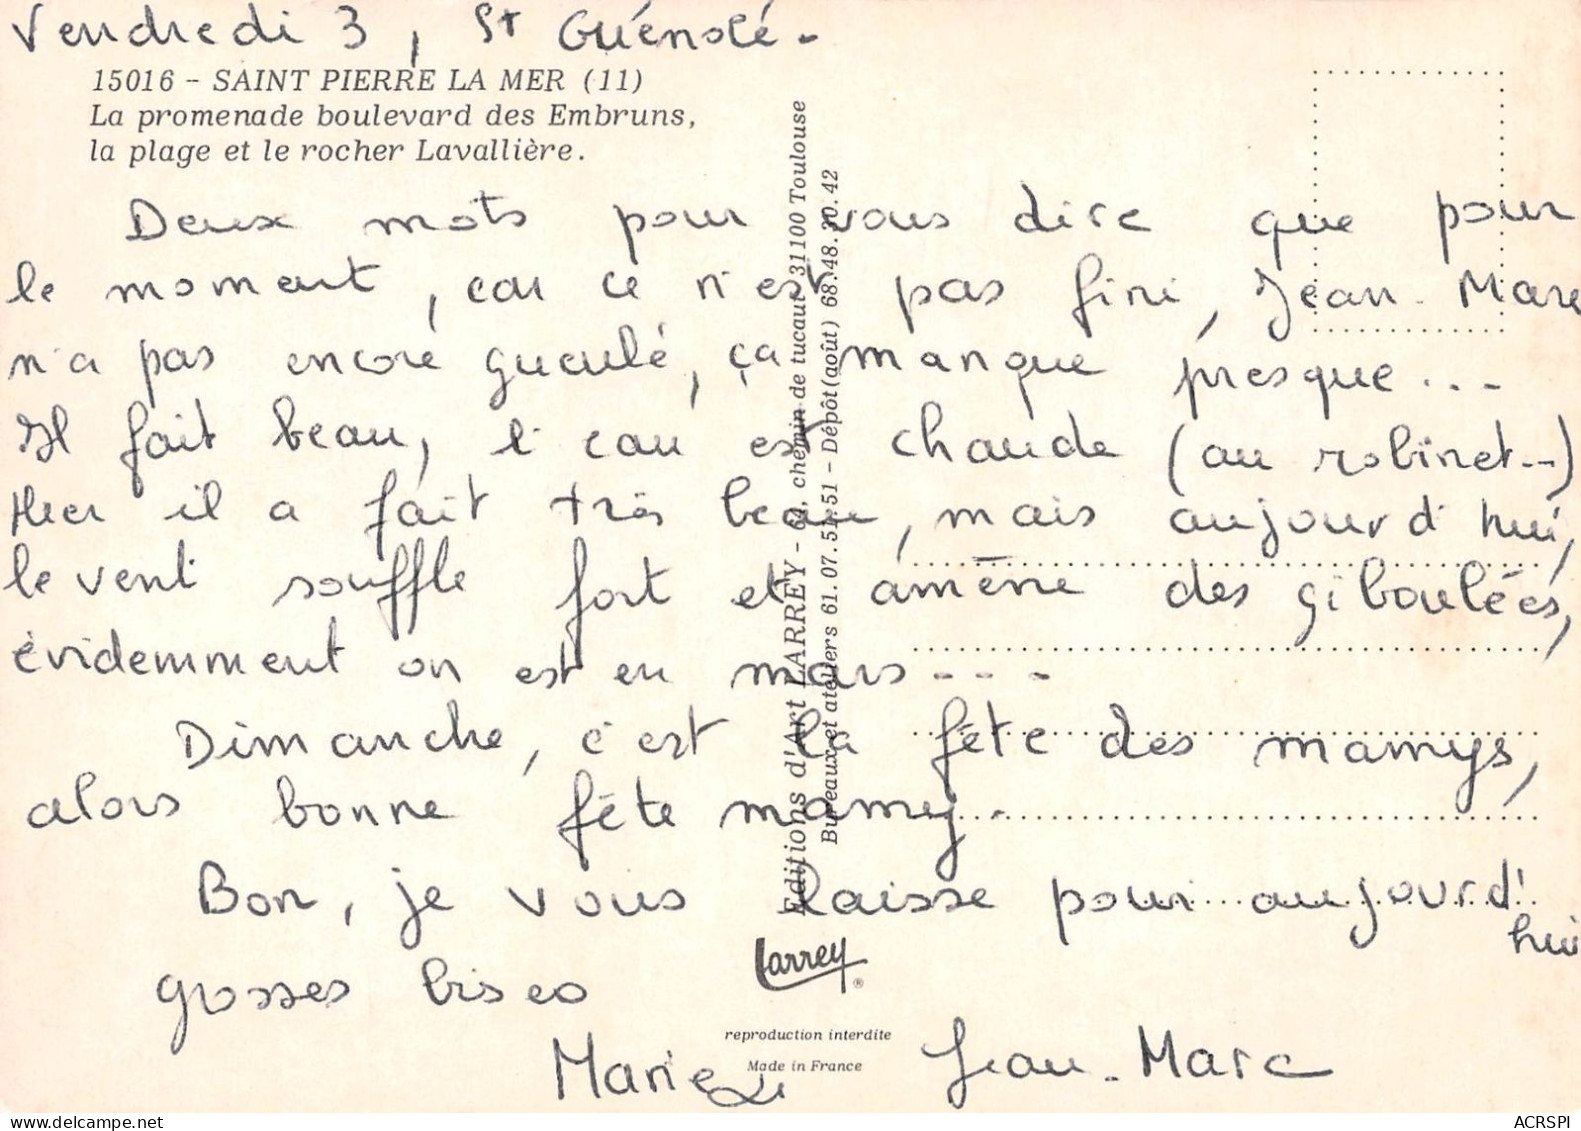 Vendredi 3, St Guénolé -
15016 - SAINT PIERRE LA MER (11)
La promenade boulevard des Embruns,
la plage et le rocher Lavallière.
Deux mots pour vous dire que pour
le moment, car ce n'est pas fini, Jean-Marc
n'a pas encore gueulé, ça manque presque...
Il fait beau, l'eau est chaude (au robinet...)
Hier il a fait très beau, mais aujourd'hui,
le vent souffle fort et amène des giboulées,
évidemment on est en mars - - -
Dimanche, c'est la fête des mamys,
alors bonne fête mamy.
Bon, je vous laisse pour aujourd'
hui
grosses bises
Marie Jean-Marc
Editions d'Art LARREY - 60, chemin de tucaut 31100 Toulouse
Bureaux et ateliers 61.07.51.51 - Dépôt (août) 68.48.20.42
Larrey
®
reproduction interdite
Made in France
ACRSPI